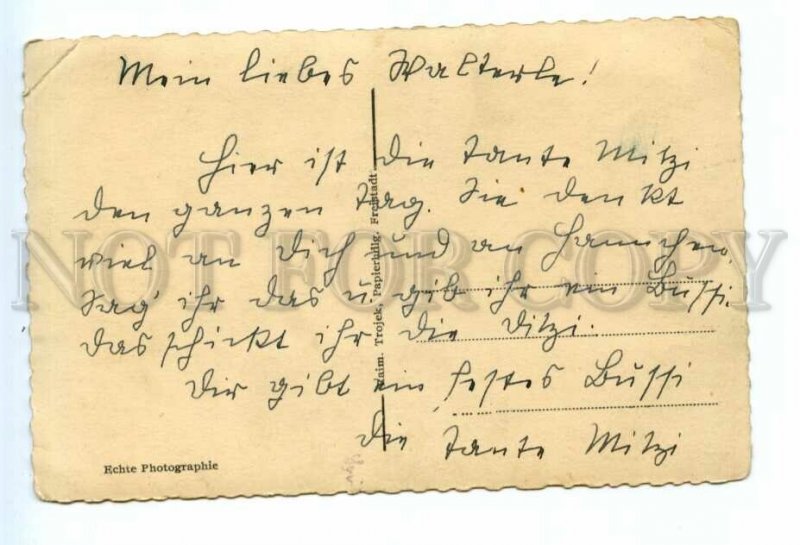 Mein liebes Walterle!
Hier ist die Tante Mitzi
den ganzen Tag. Sie denkt
viel an Dich und an Hannchen.
Sag' ihr das u. gib ihr ein Bussi.
Das schickt ihr die Ditzi.
Dir gibt ein festes Bussi
die Tante Mitzi
Echte Photographie
Raim. Trojek, Papierhdlg. Freistadt
NOT FOR COPY